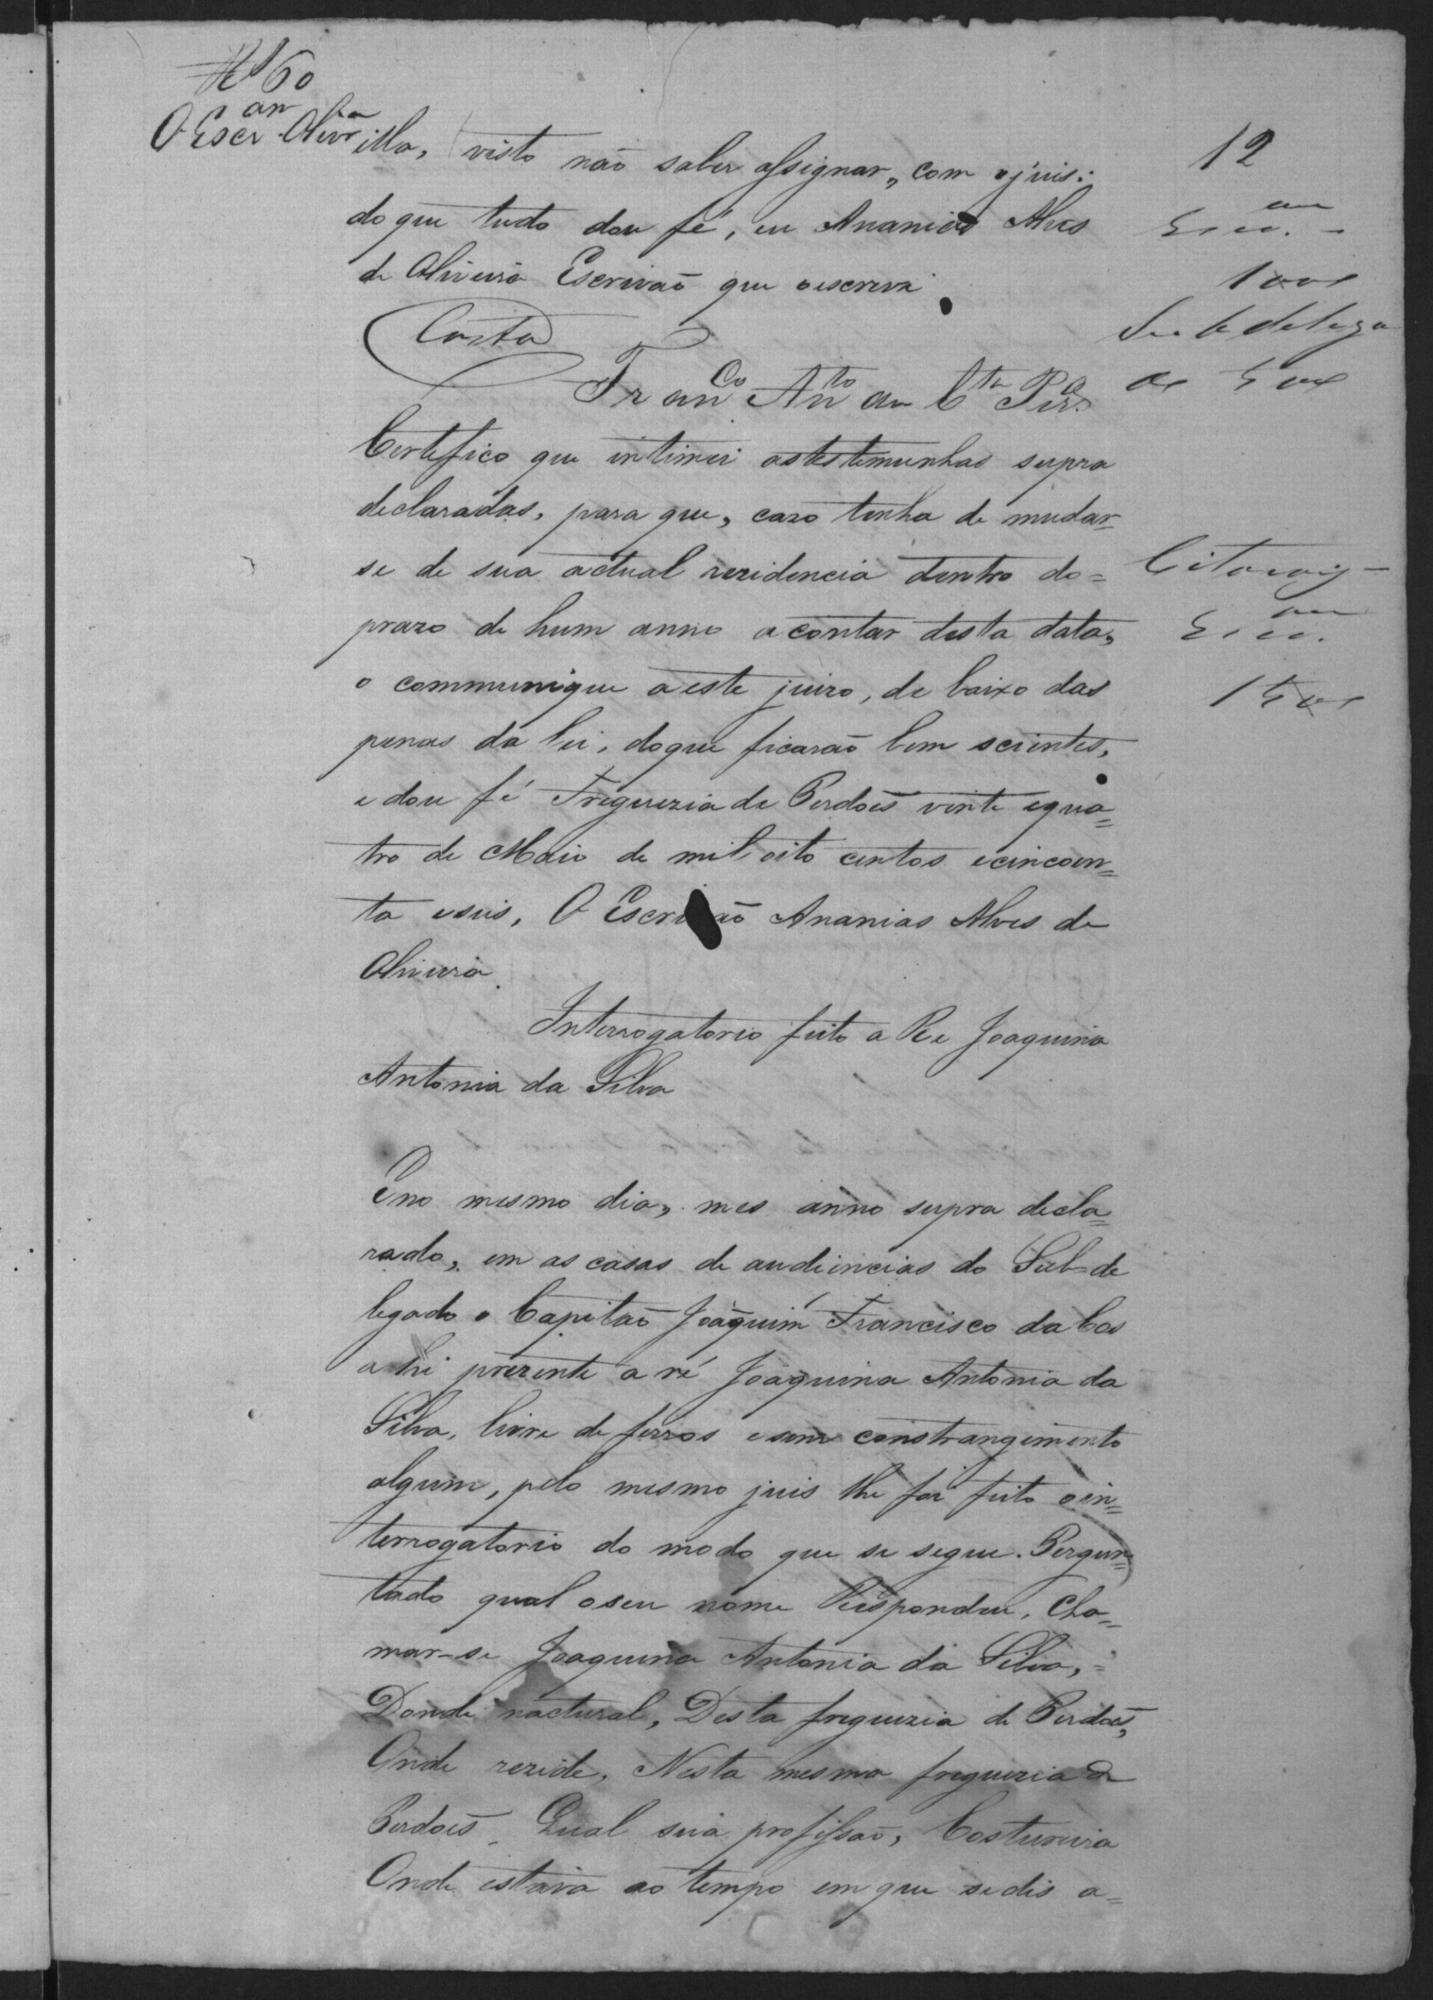 N 60
O Escr.am Olivra
12
illa, visto não saber assignar, com o juis:
do que tudo dou fé, eu Ananias Alves
de Oliveira Escrivaõ que o escrevi
Escr.am
1000
Costa
Subdelega
Franco Anto da Cta Pera
do 500
Certifico que intimei as testemunhas supra
declaradas, para que, cazo tenha de mudar=
se de sua actual rezidencia dentro do=
Citaçoẽs
prazo de hum anno a contar desta data,
Escr.am
o communique a este juizo, de baixo das
1500
penas da lei, do que ficaraõ bem scientes,
e dou fé Freguezia de Perdoẽs vinte e qua=
tro de Maio de mil oito centos e cincoen=
ta e seis, O Escrivaõ Ananias Alves de
Oliveira.
Interrogatorio feito a Re Joaquina
Antonia da Silva
E no mesmo dia, mes anno supra decla=
rado, em as casas de audiencias do Sub-de
legado o Capitaõ Joaquim Francisco da Cos
ahi prezente a ré Joaquina Antonia da
Silva, livre de ferros e sem constrangimento
algum, pelo mesmo juis lhe foi feito o in=
terrogatorio do modo que se segue. Pergun=
tado qual o seu nome Respondeu, Cha=
mar-se Joaquina Antonia da Silva,=
Donde nactural, Desta freguezia de Perdoẽs,
Onde rezide, Nesta mesma freguezia de
Perdoẽs. Qual sua profissaõ, Costureira
Onde estava ao tempo em que se dis a=